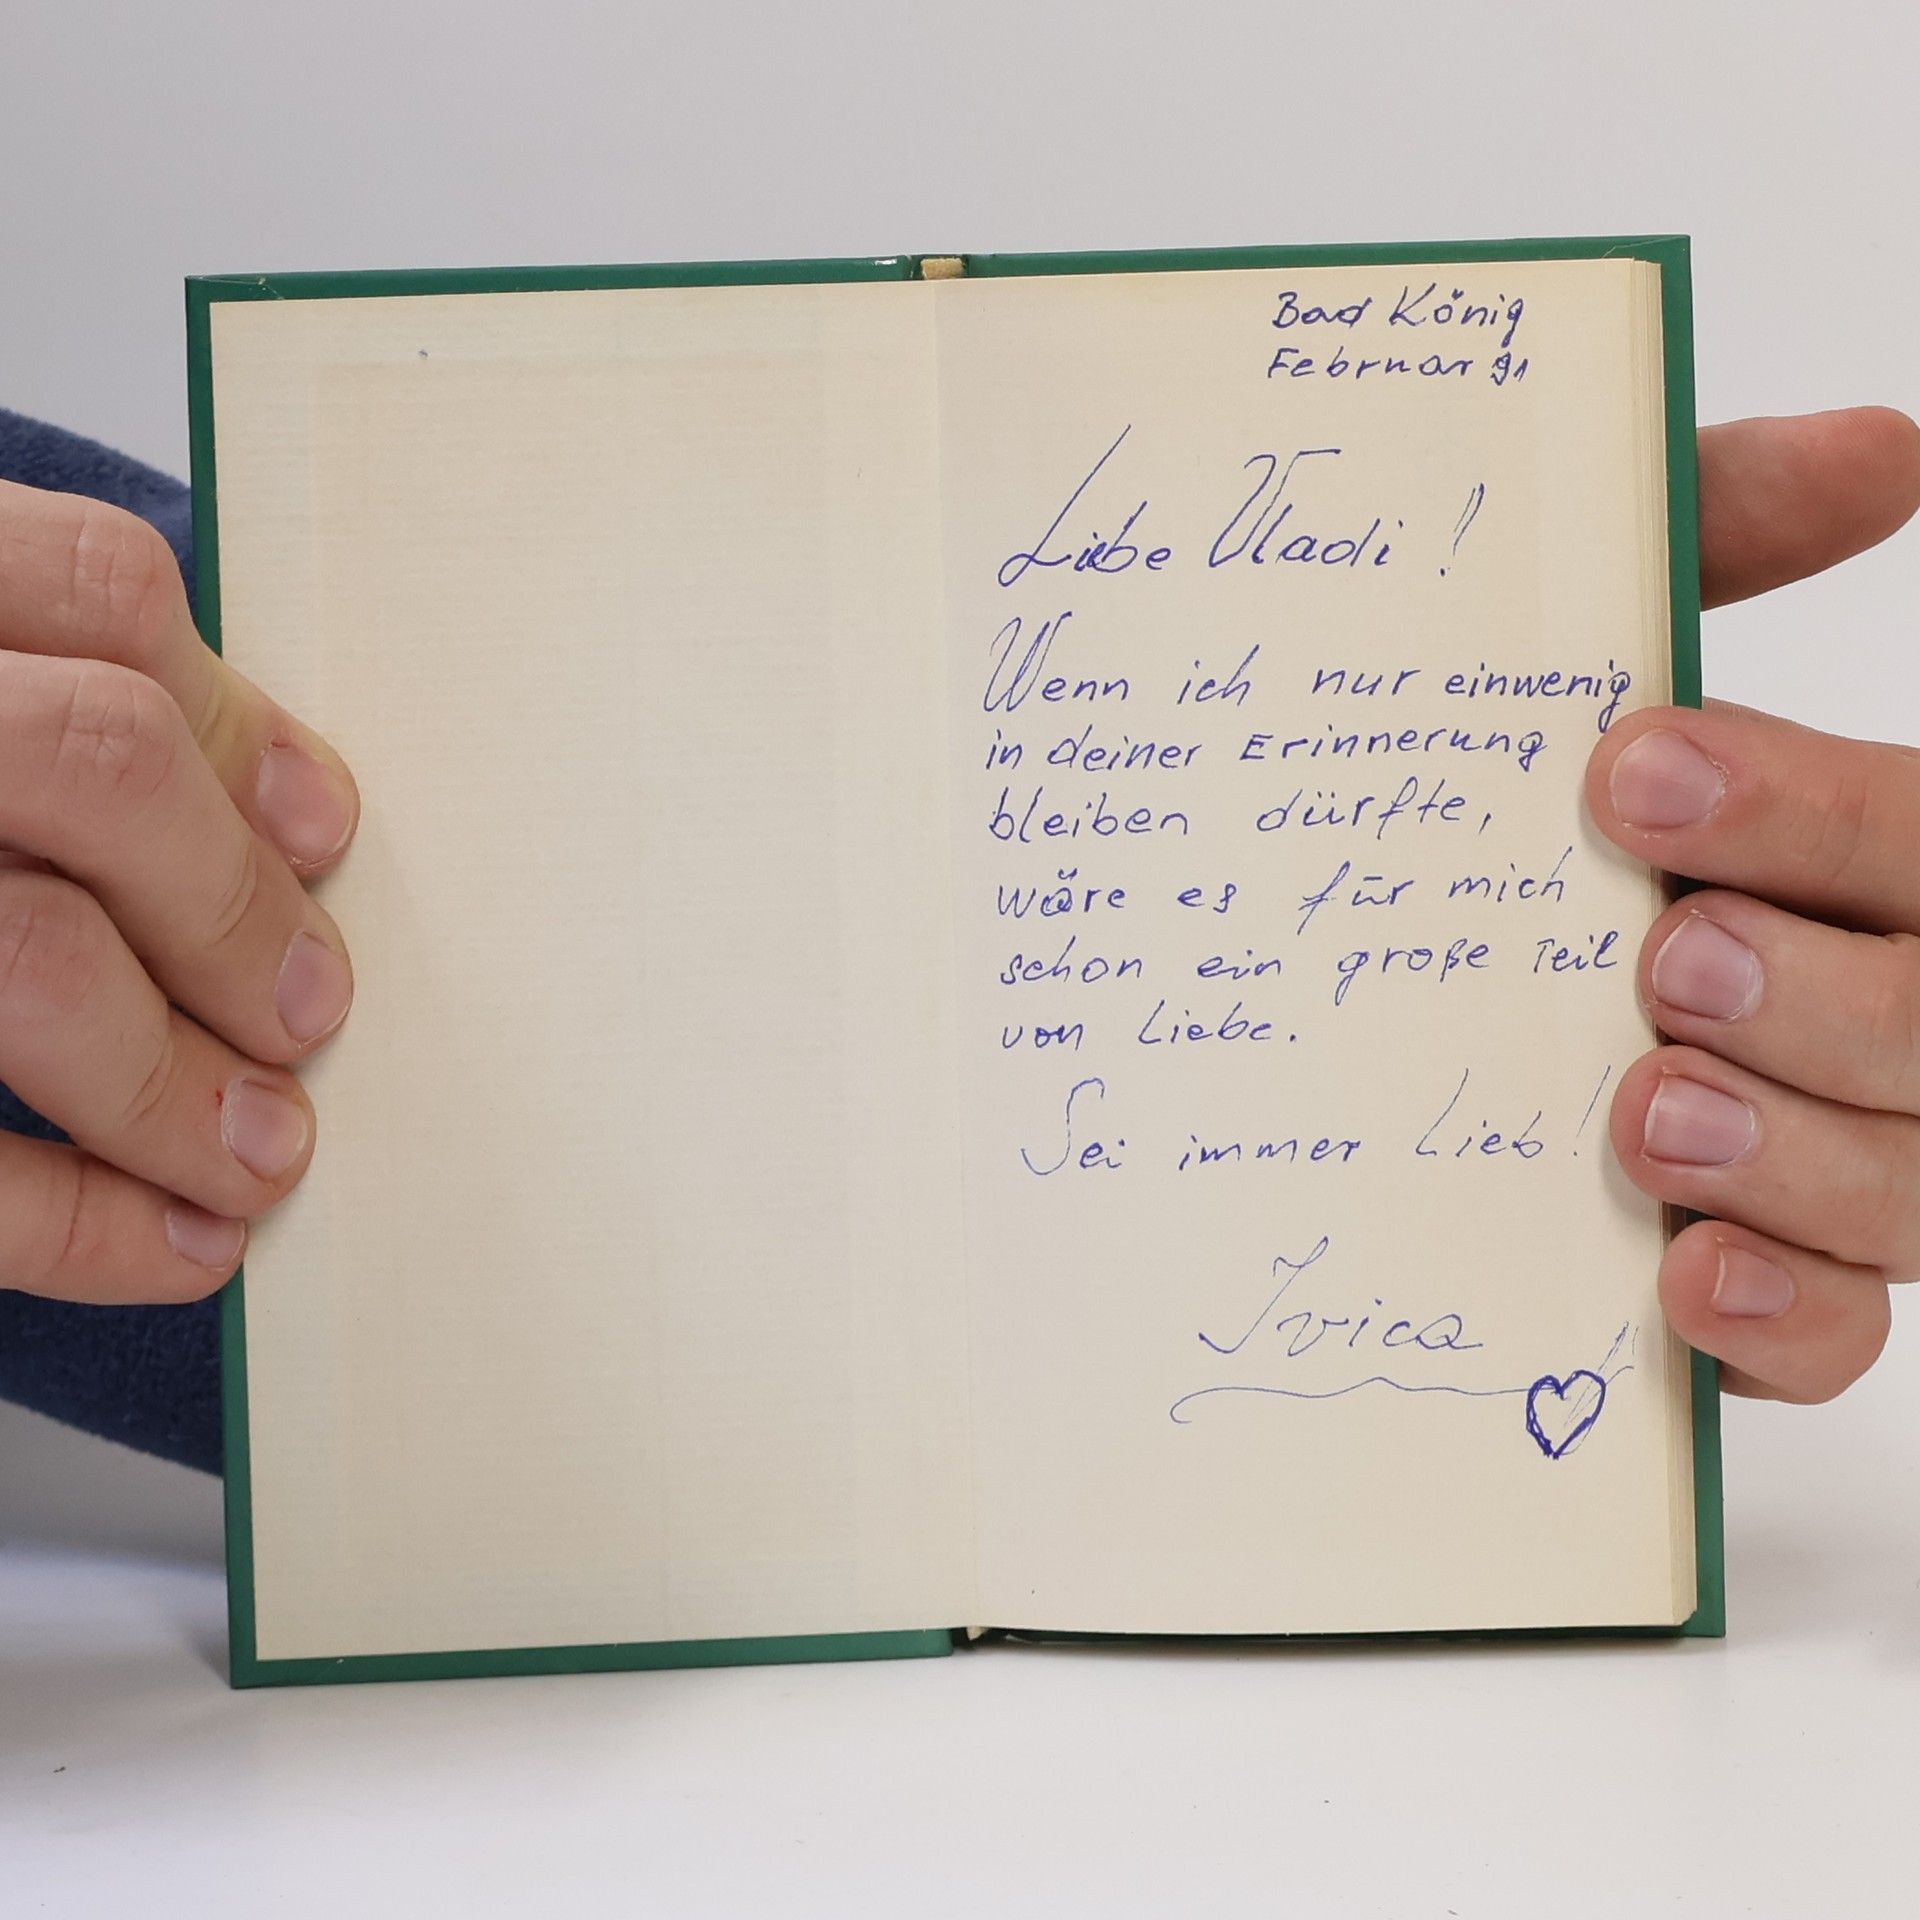 Bad König
Februar 91
Liebe Vladi !
Wenn ich nur einwenig
in deiner Erinnerung
bleiben dürfte,
wäre es für mich
schon ein große Teil
von Liebe.
Sei immer Lieb !
Ivica